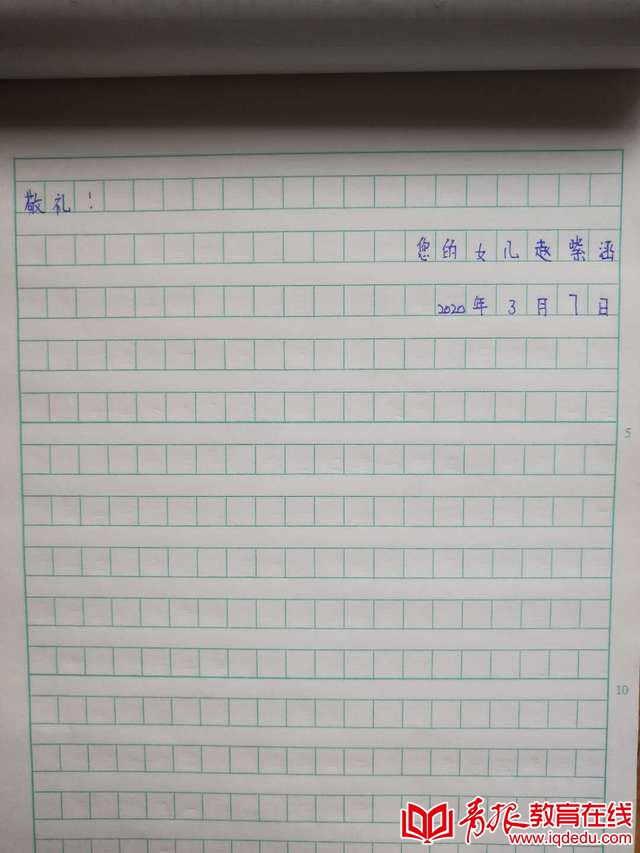 敬礼!
您的女儿赵紫涵
2020年3月7日
5
10
青报教育在线
www.iqdedu.com